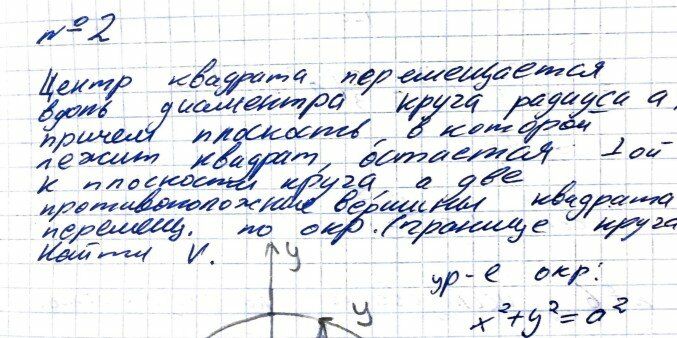 №2
Центр квадрата перемещается
вдоль диаментра круга радиуса a,
причем плоскость, в которой
лежит квадрат, остается ⊥ой
к плоскости круга а две
противоположные вершины квадрата
перемещ. по окр. (границе круга
Найти V.
y
ур-е окр:
y
x²+y²=a²